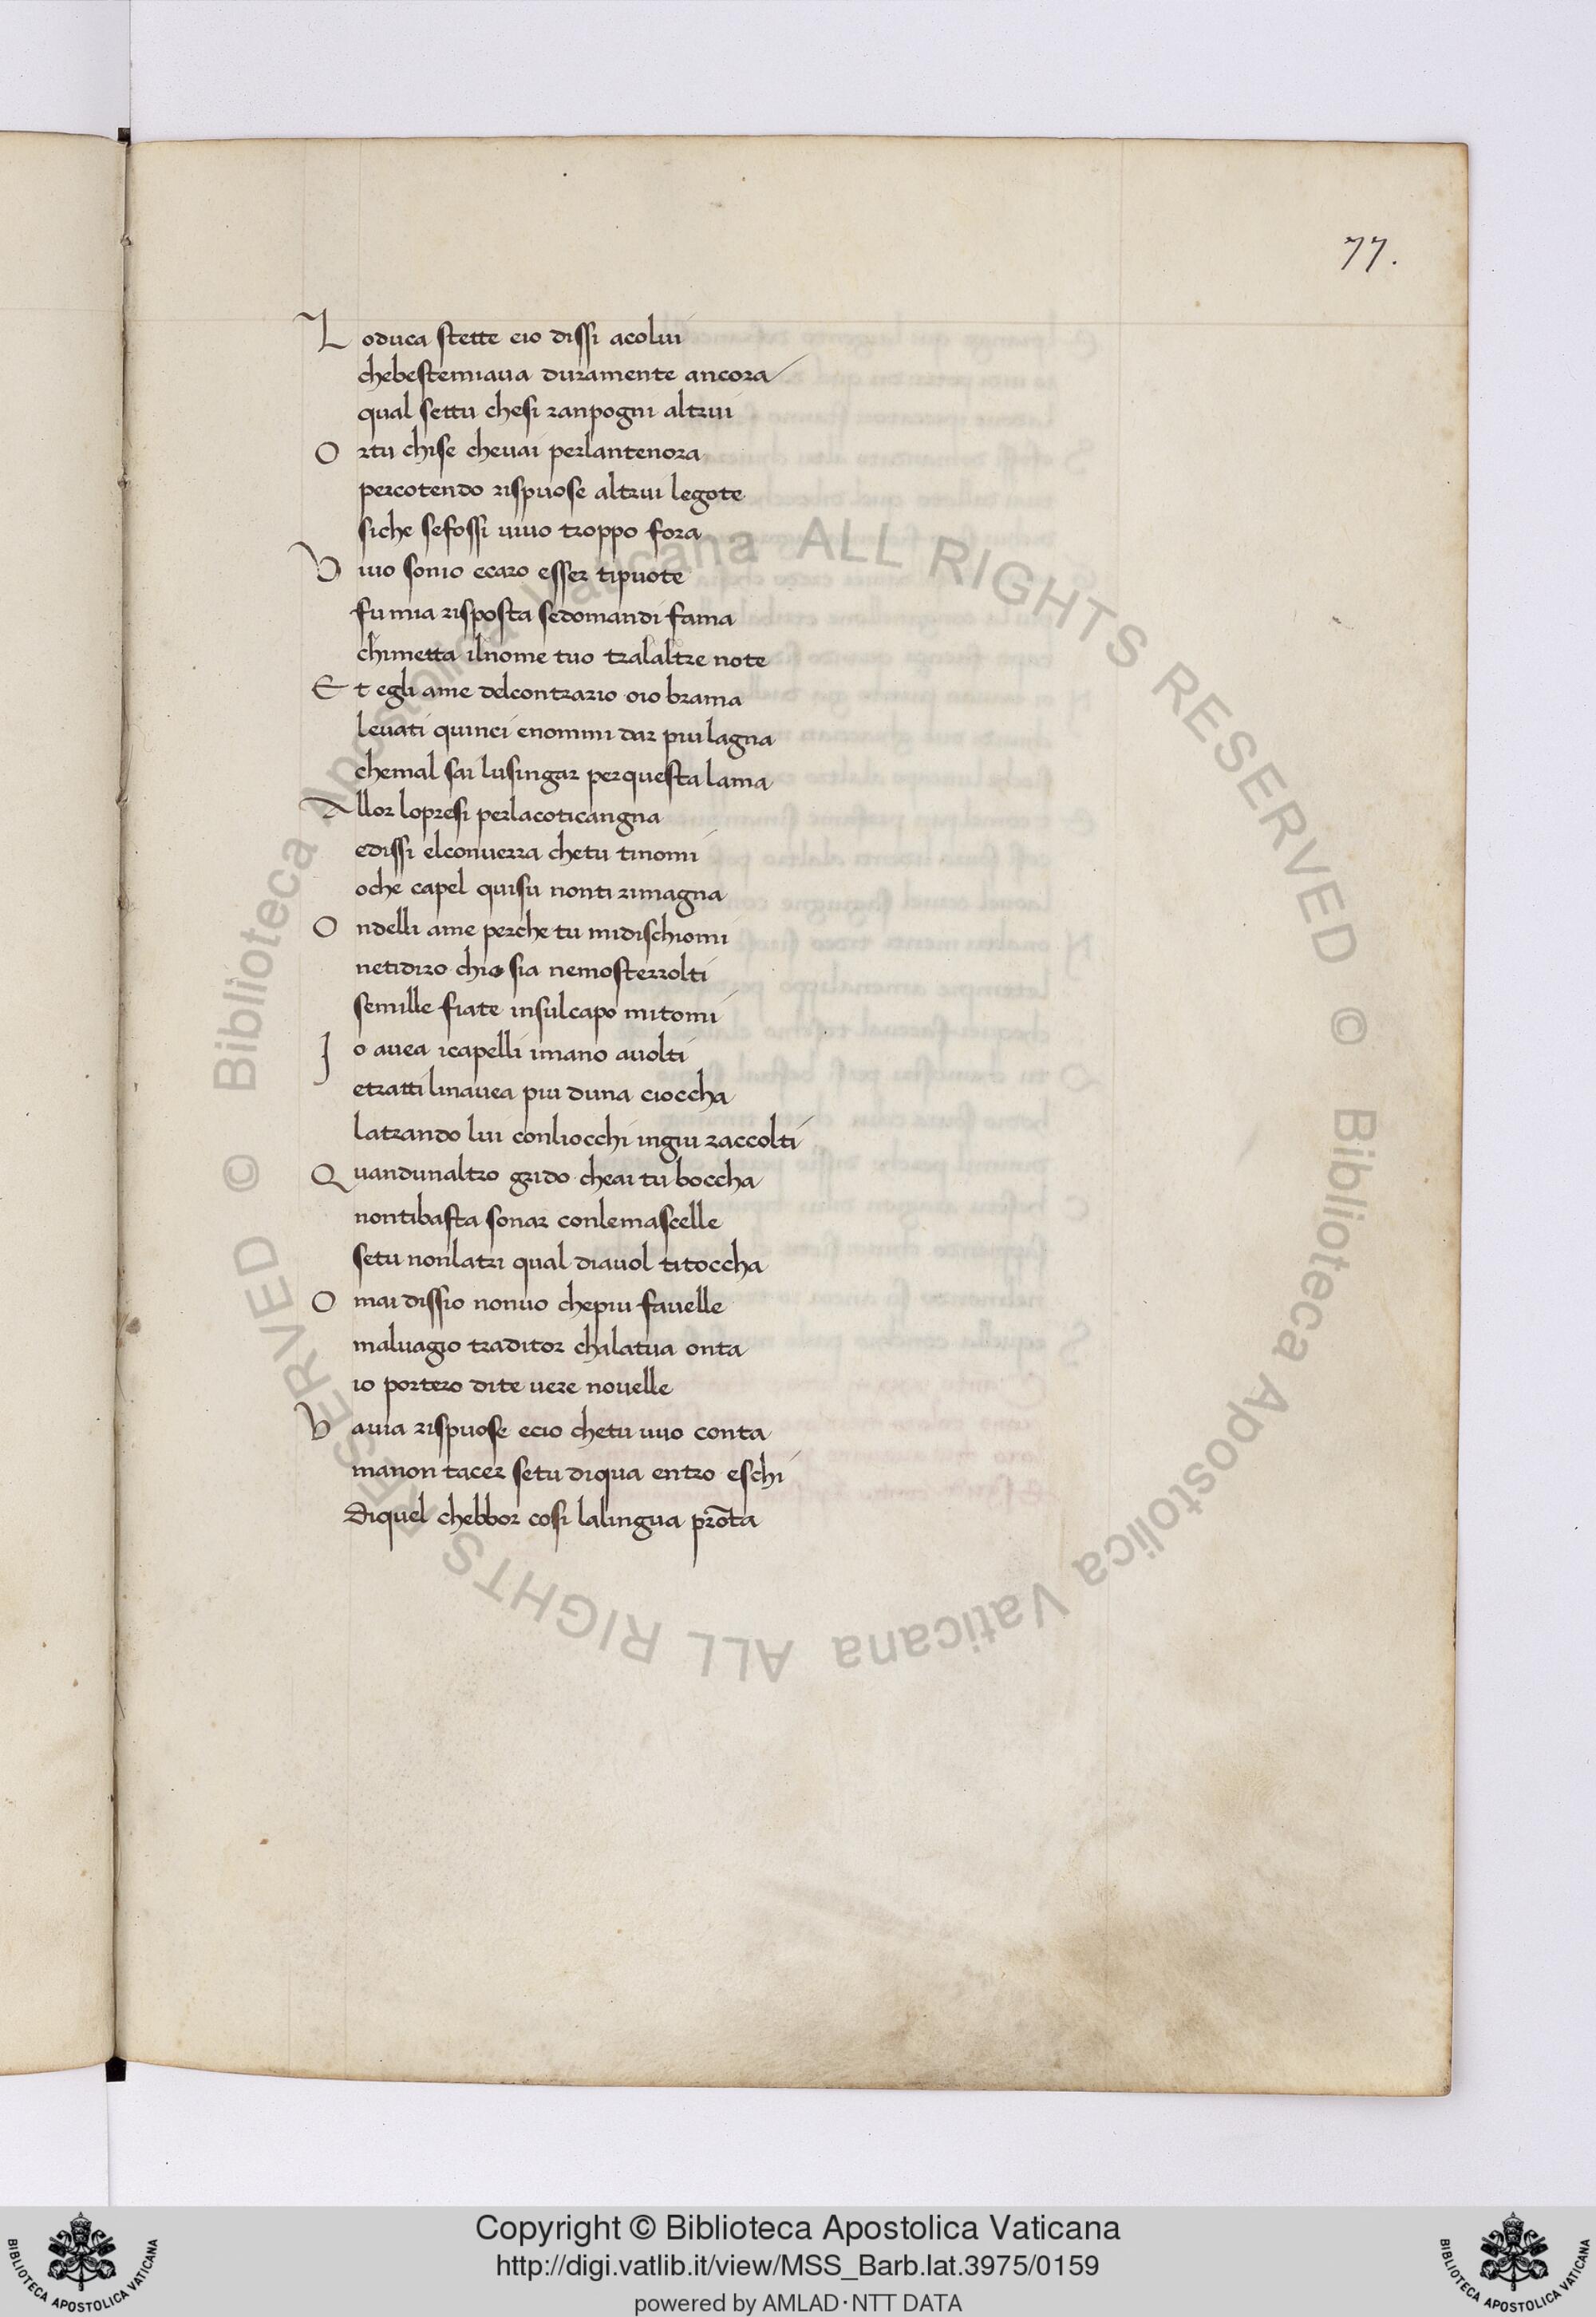 77.
L oduca stette eio dissi acolui
chebestemiaua duramente ancora
qual settu chesi ranpogni altrui
O rtu chise cheuai perlantenora
percotendo rispuose altrui legote
siche sefossi uiuo troppo fora
V iuo sonio ecaro esser tipuote
fu mia risposta sedomandi fama
chimetta ilnome tuo tralaltre note
E t egli ame delcontrario oio brama
leuati quinci enommi dar piu lagna
chemal sai lusingar perquesta lama
A llor lopresi perlacoticangna
edissi elconuerra chetu tinomi
oche capel quisu nonti rimagna
O ndelli ame perche tu midischiomi
netidiro chio sia nemosterrolti
semille fiate insulcapo mitomi
I o auea icapelli imano auolti
etratti linauea piu duna cioccha
latrando lui conliocchi ingiu raccolti
Q uandunaltro grido cheai tu boccha
nontibasta sonar conlemascelle
setu nonlatri qual diauol titoccha
O mai dissio nonuo chepiu fauelle
maluagio traditor chalatua onta
io portero dite uere nouelle
V auia rispuose ecio chetu uuo conta
manon tacer setu diqua entro eschi
Diquel chebbor cosi lalingua prōta
© Biblioteca Apostolica Vaticana ALL RIGHTS RESERVED © Biblioteca Apostolica Vaticana ALL RIGHTS RESERVED
BIBLIOTECA APOSTOLICA VATICANA
Copyright © Biblioteca Apostolica Vaticana
http://digi.vatlib.it/view/MSS_Barb.lat.3975/0159
powered by AMLAD·NTT DATA
BIBLIOTECA APOSTOLICA VATICANA